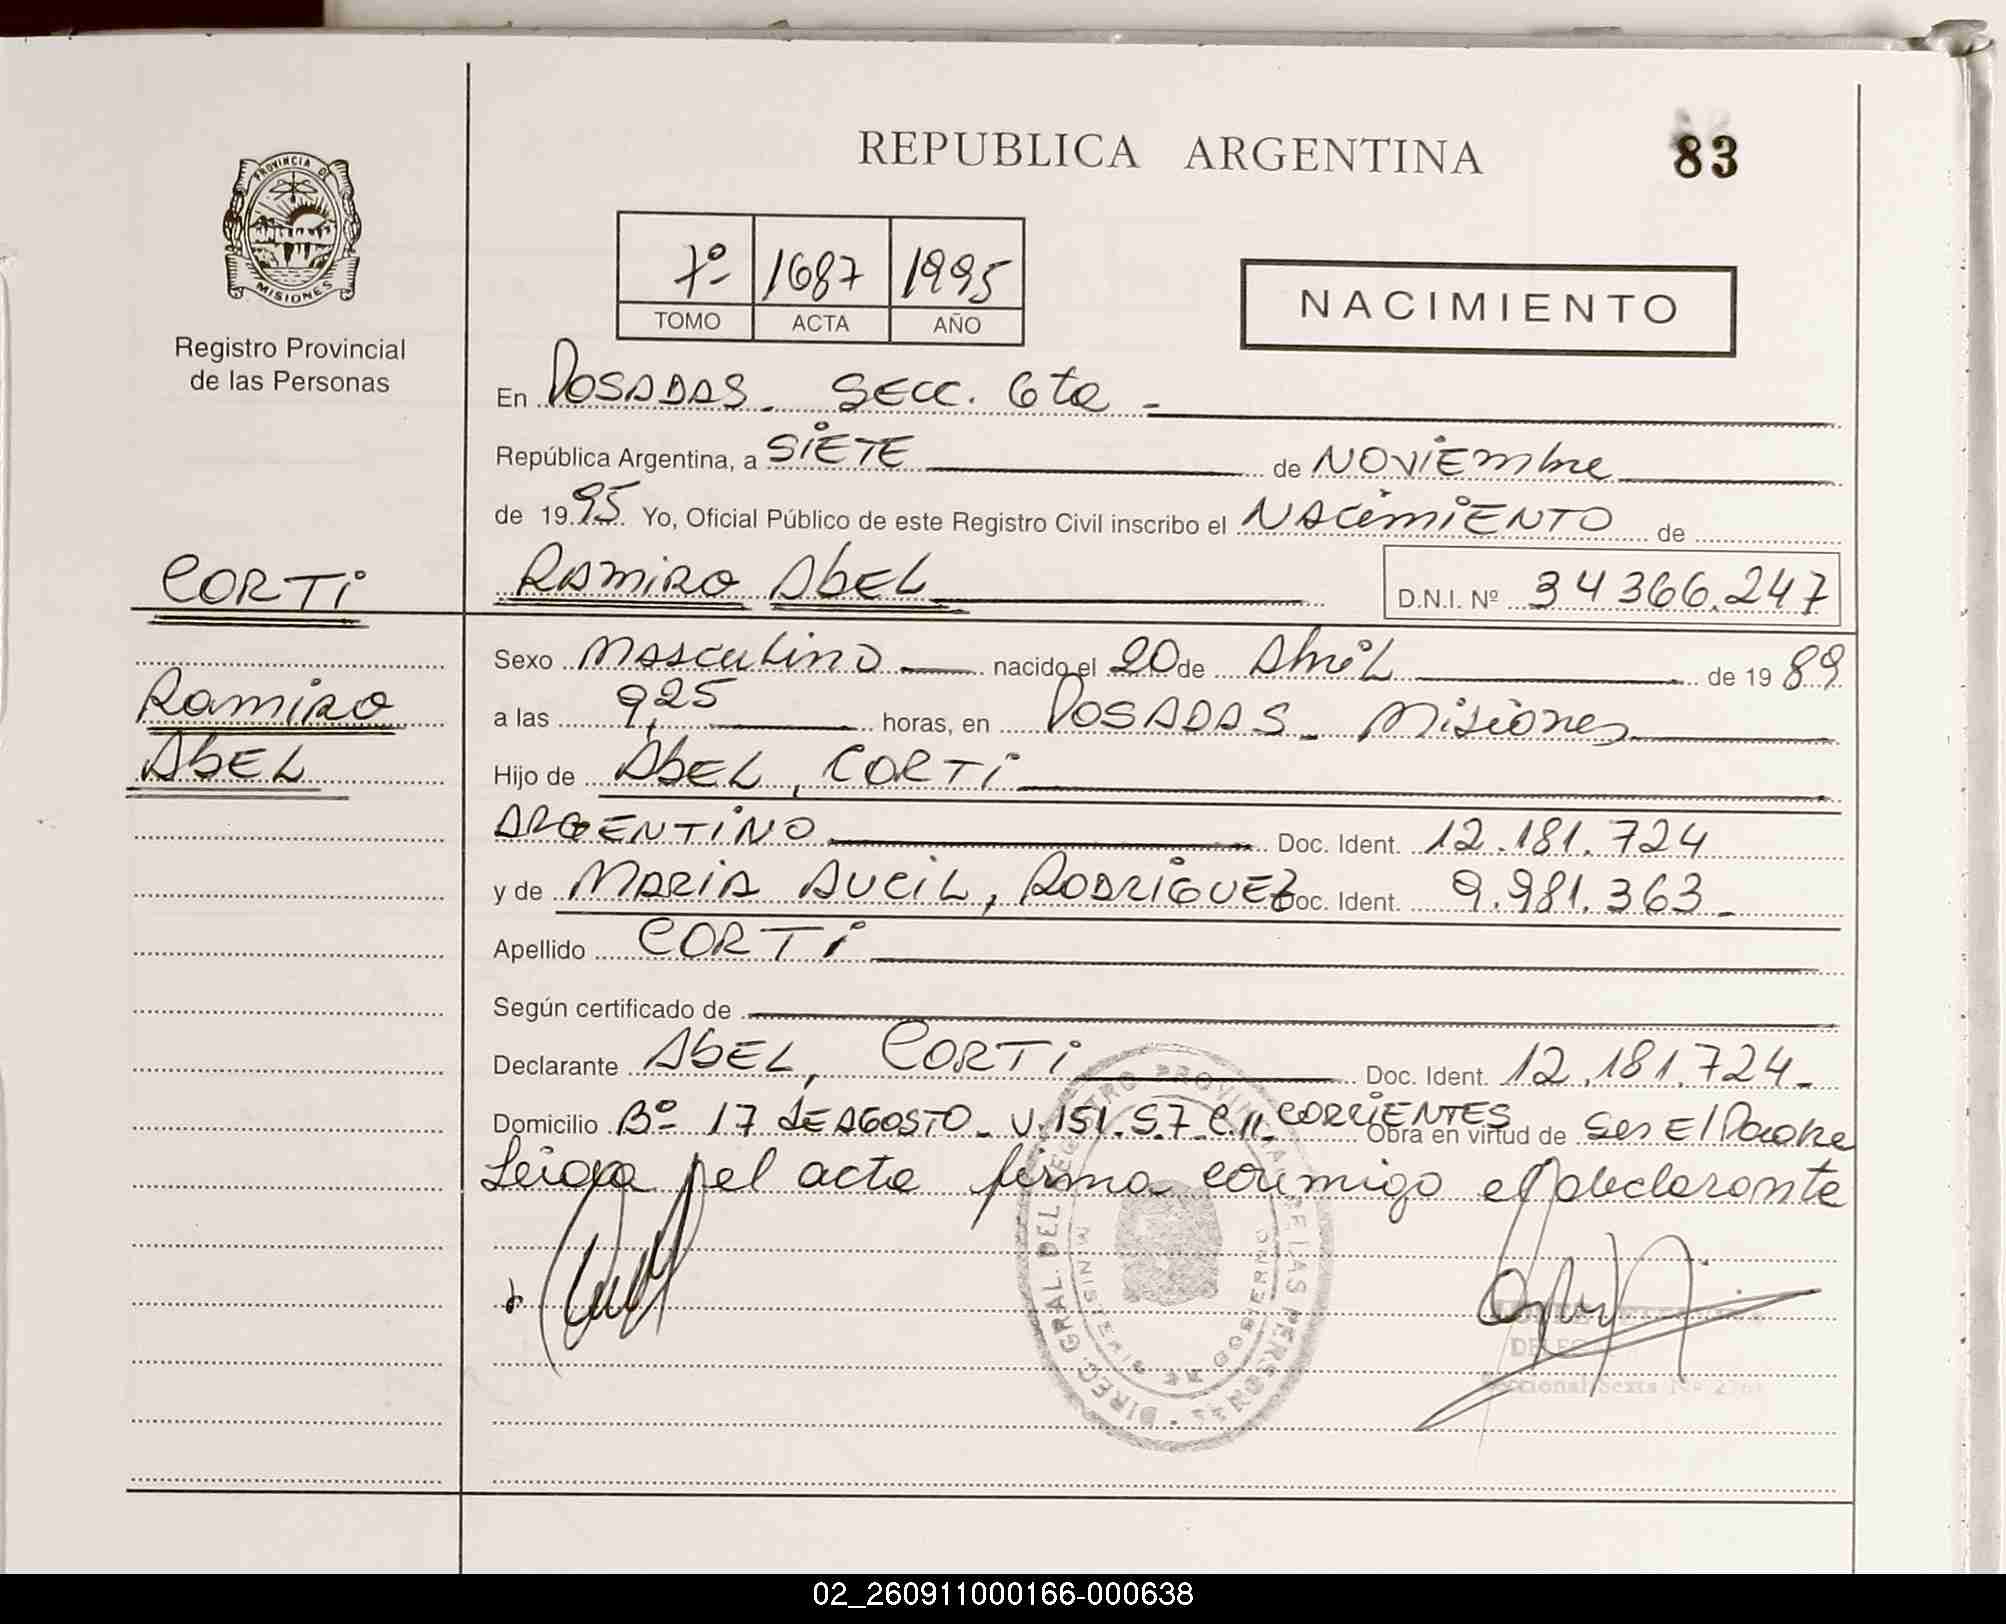 REPUBLICA ARGENTINA
83
PROVINCIA DE
MISIONES
Registro Provincial
de las Personas
7º 1687 1995
TOMO ACTA AÑO
NACIMIENTO
En POSADAS. SECC. 6ta -
República Argentina, a SiETE de NOViEmbre
de 1995 Yo, Oficial Público de este Registro Civil inscribo el NACimiENTO de
CORTi
RAMIRO AbEL
D.N.I. Nº 34366.247
Ramiro
AbEL
Sexo mAsculino nacido el 20 de AbriL de 1989
a las 9,25 horas, en POSADAS - Misiones
Hijo de AbEL, CORTi
ARGENTiNO Doc. Ident. 12.181.724
y de MARIA AUCiL, RODRIGUEZ Doc. Ident. 9.981.363 -
Apellido CORTi
Según certificado de
Declarante AbEL, CORTi Doc. Ident. 12.181.724-
Domicilio Bº 17 de AGOSTO - V.151.S.7 C.11- CORRiENTES Obra en virtud de ser El Padre
Leida el acta firma conmigo el declarante
DIREC. GRAL. DEL REGISTRO PROVINCIAL DE LAS PERSONAS
MINISTERIO DE GOBIERNO
02_260911000166-000638